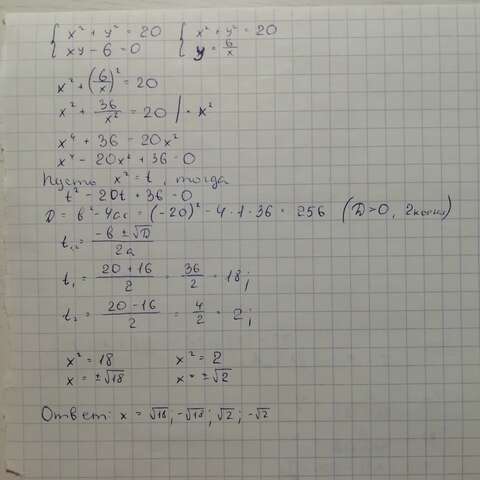 { x² + y² = 20 { x² + y² = 20
{ xy - 6 = 0 { y = 6/x
x² + (6/x)² = 20
x² + 36/x² = 20 | · x²
x⁴ + 36 = 20x²
x⁴ - 20x² + 36 = 0
Пусть x² = t, тогда
t² - 20t + 36 = 0
D = b² - 4ac = (-20)² - 4 · 1 · 36 = 256 (D>0, 2 корня)
t₁,₂ = (-b ± √D)/2a
t₁ = (20 + 16)/2 = 36/2 = 18;
t₂ = (20 - 16)/2 = 4/2 = 2;
x² = 18 x² = 2
x = ±√18 x = ±√2
Ответ: x = √18; -√18; √2; -√2